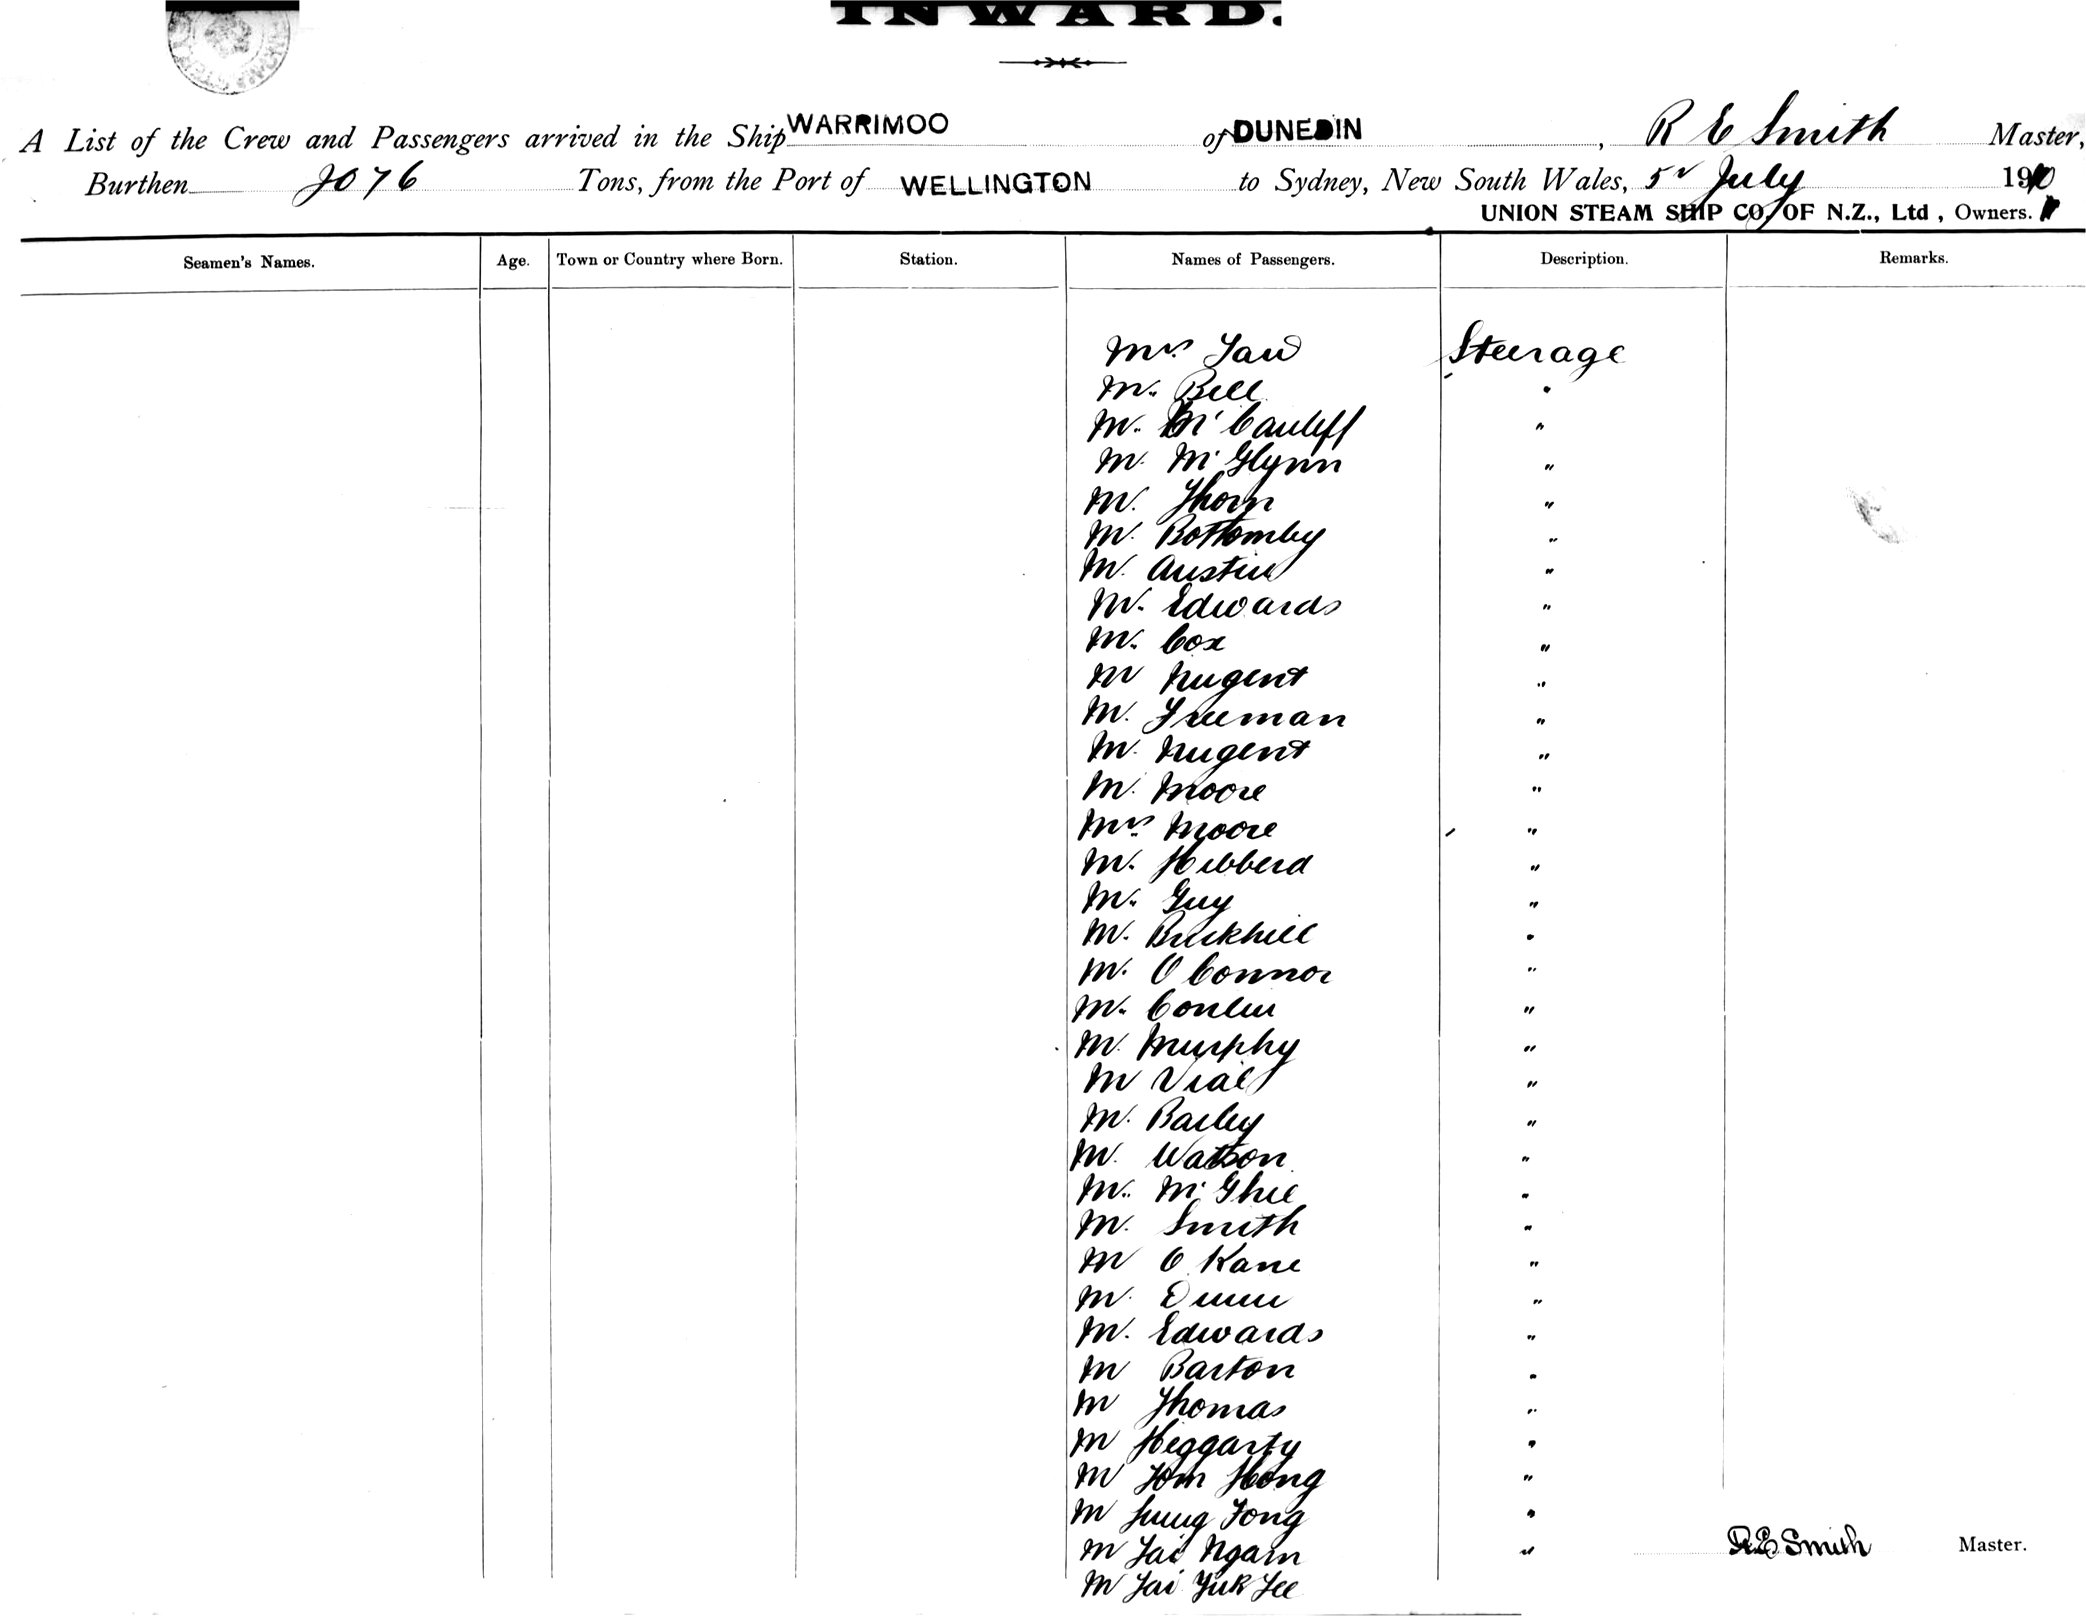 INWARD.
A List of the Crew and Passengers arrived in the Ship WARRIMOO of DUNEDIN, R E Smith Master,
Burthen 2076 Tons, from the Port of WELLINGTON to Sydney, New South Wales, 5 July 1910
UNION STEAM SHIP CO, OF N.Z., Ltd, Owners.
Seamen's Names. Age. Town or Country where Born. Station. Names of Passengers. Description. Remarks.
Mrs Steerage
Mr. Bell "
Mr. McCauliff "
Mr McGlynn "
Mr. Thorn "
Mr. Bottomley "
Mr. Austin "
Mr. Edwards "
Mr. Cox "
Mr Nugent "
Mr. Freeman "
Mr. Nugent "
Mr. Moore "
Mrs Moore "
Mr. Hibberd "
Mr. Guy "
Mr. "
Mr. O Connor "
Mr. Conlin "
Mr. Murphy "
Mr Vial "
Mr. Bailey "
Mr. Watson "
Mr. McGhie "
Mr. Smith "
Mr O Kane "
Mr. Dunn "
Mr. Edwards "
Mr Barton "
Mr Thomas "
Mr Heggarty "
Mr Tom Hong "
Mr Fong "
Mr Ngam " R E Smith Master.
Mr